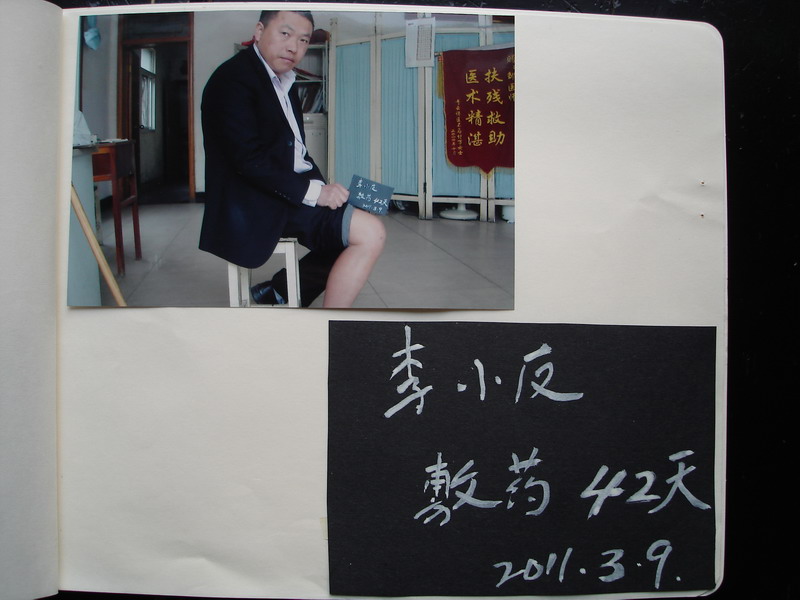 扶残救助
医术精湛
李小反
敷药 42天
2011.3.9
李小反
敷药 42天
2011.3.9.